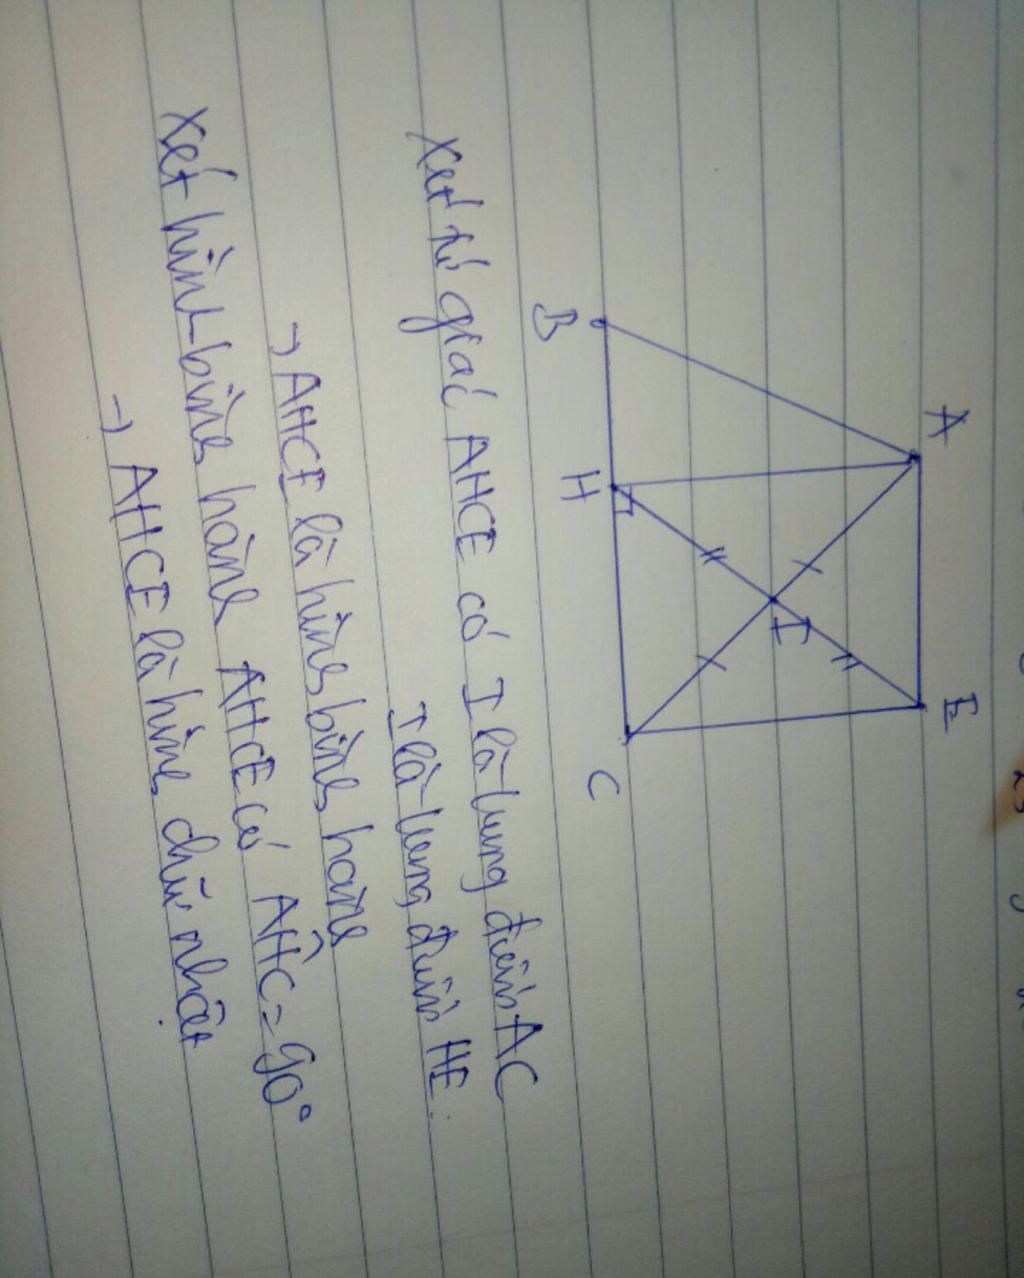 A
E
I
B
H
C
Xét tứ giác AHCE có I là trung điểm AC
I là trung điểm HE.
→ AHCE là hình bình hành
Xét hình bình hành AHCE có AĤC = 90°
→ AHCE là hình chữ nhật